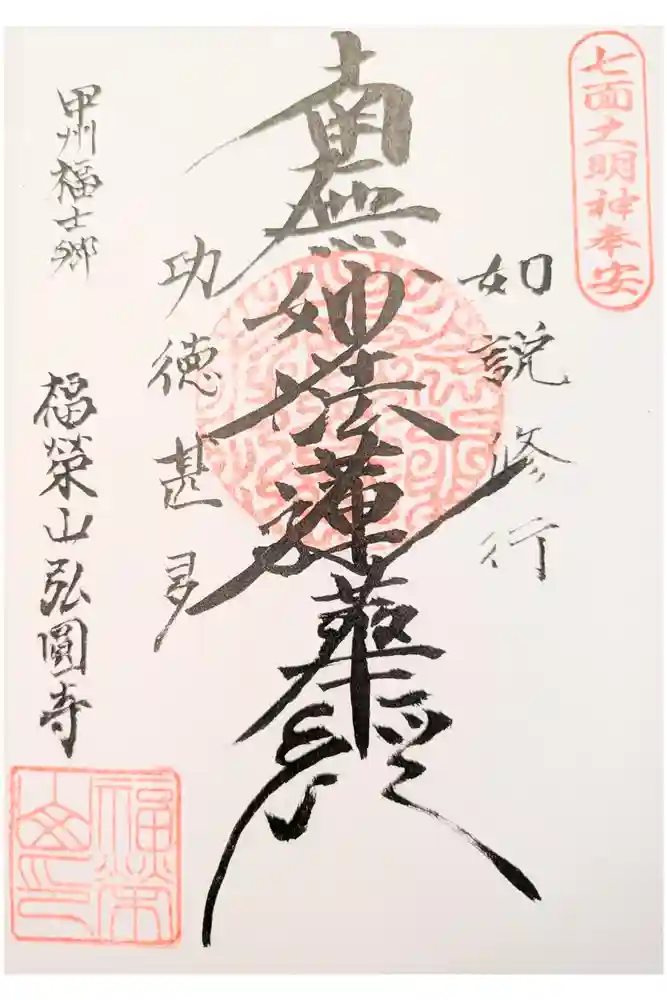 七面之明神奉安
如説修行
南無妙法蓮華経
功徳甚多
甲州福士郷
福榮山弘圓寺
福榮山印